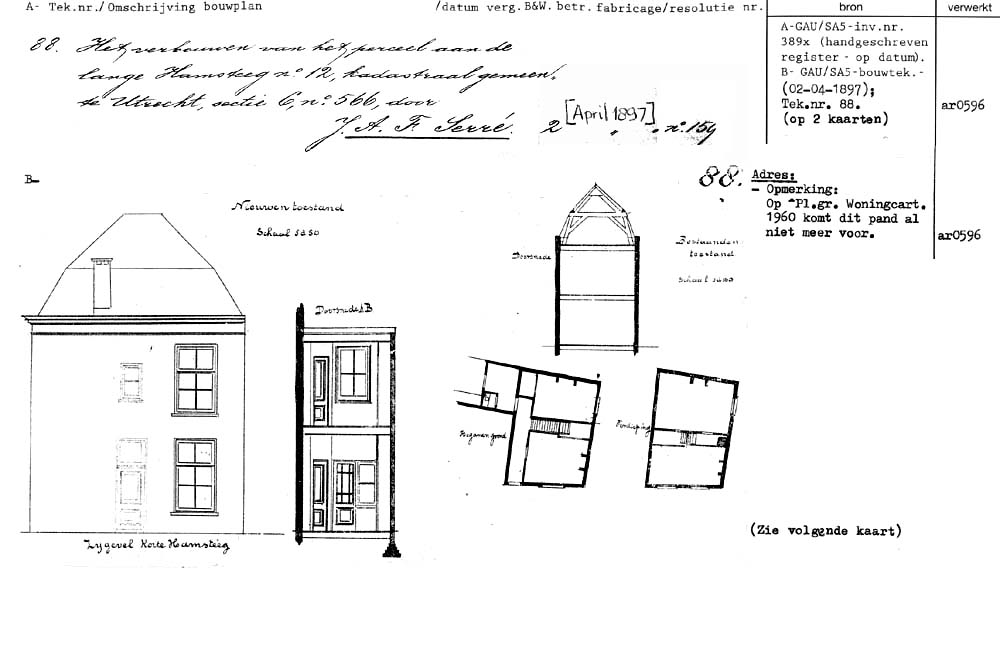 A- Tek.nr./Omschrijving bouwplan
/datum verg. B&W. betr. fabricage/resolutie nr.
bron
verwerkt
88. Het verbouwen van het perceel aan de
lange Hamsteeg nº 12, kadastraal gemeen.
te Utrecht, sectie C, nº 566, door
J. A. F. Serré.
2 [April 1897] " " nº 159
A-GAU/SA5-inv.nr.
389x (handgeschreven
register - op datum).
B- GAU/SA5-bouwtek.-
(02-04-1897);
Tek.nr. 88.
(op 2 kaarten)
ar0596
B-
88.
Adres:
- Opmerking:
Op "Pl.gr. Woningcart.
1960 komt dit pand al
niet meer voor.
ar0596
Nieuwen toestand
Schaal 1 à 50
Doorsnede AB
Zijgevel Korte Hamsteeg
Doorsnede
Bestaanden
toestand
Schaal 1 à 100
Beganen grond
Verdieping
(Zie volgende kaart)